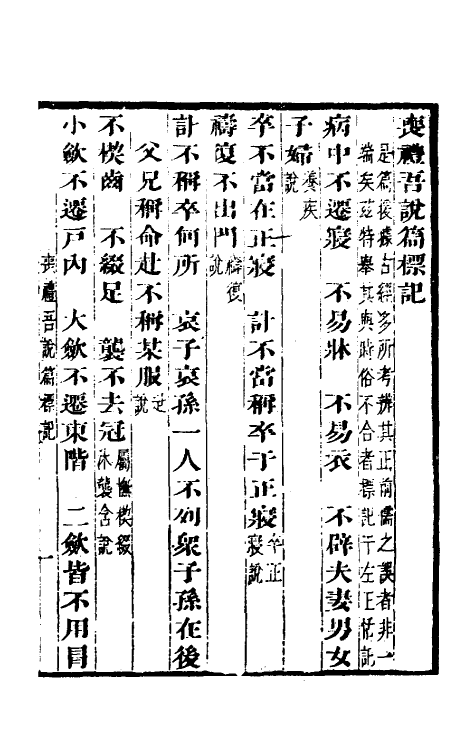 喪禮吾說篇標記
是篇後據古經多所考辨其正前儒之誤者非一
端矣茲特舉其與時俗不合者標記于左正佑記
病中不遷寢　不易牀　不易衣　不辟夫妻男女
子婦養疾說
卒不當在正寢　訃不當稱卒于正寢卒正寢說
禱復不出門禱復說
訃不稱卒何所　哀子哀孫一人不列衆子孫在後
父兄稱命赴不稱某服赴說
不楔齒　不綴足　襲不去冠屬憮楔綴沐襲含說
小斂不遷戶內　大斂不遷東階　二斂皆不用冒
喪禮吾說篇標記　一